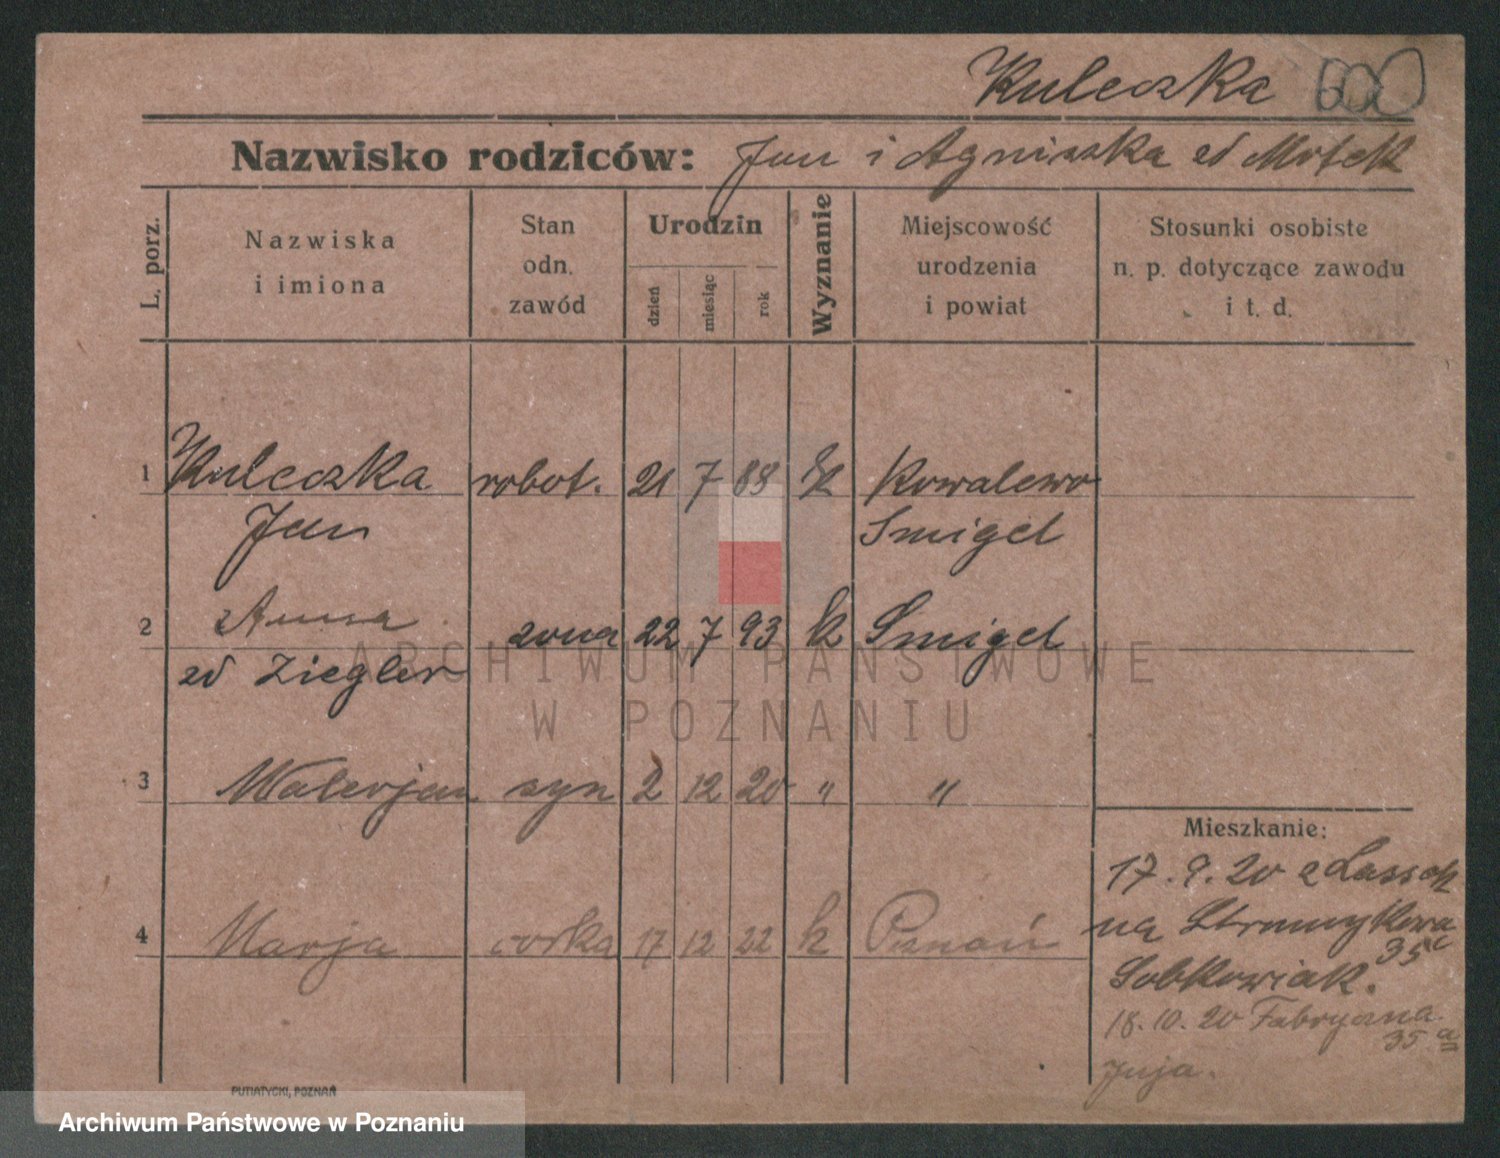 Kuleczka 600
Nazwisko rodziców: Jan i Agnieszka zd Motek
L. porz.
Nazwiska
i imiona
Stan
odn.
zawód
Urodzin
dzień
miesiąc
rok
Wyznanie
Miejscowość
urodzenia
i powiat
Stosunki osobiste
n. p. dotyczące zawodu
i t. d.
1 Kuleczka robot. 21 7 88 rk Kowalewo
Jan Smigel
2 Anna zona 22 7 93 k Smigel
zd Ziegler
3 Walerjan syn 2 12 20 " "
Mieszkanie:
17.9.20 z Lassek
na Strumykowa
35c
4 Marja corka 17 12 22 k Poznań
Sobkowiak.
18.10.20 Fabryczna
35 a
Juja.
PUTIATYCKI, POZNAŃ
ARCHIWUM PAŃSTWOWE
W POZNANIU
Archiwum Państwowe w Poznaniu